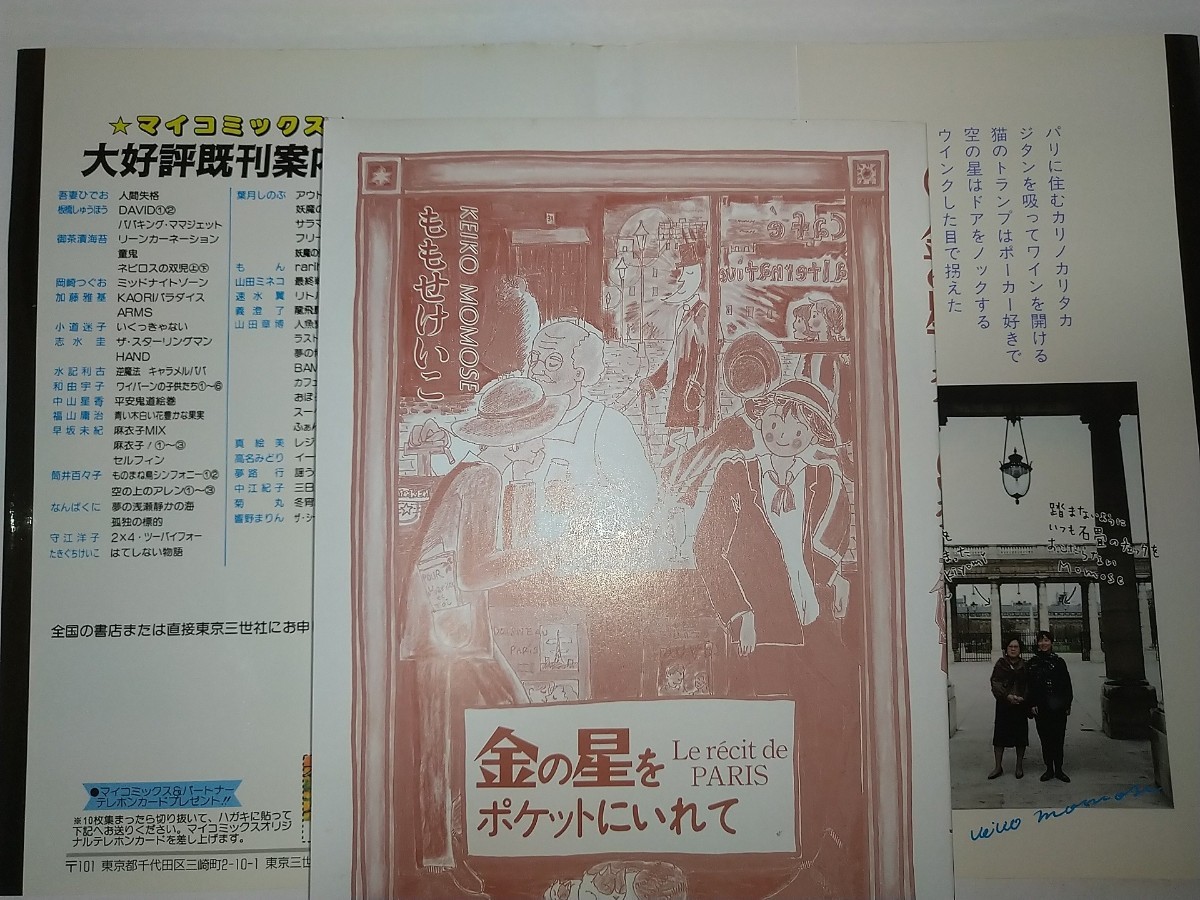 ★マイコミックス
大好評既刊案内
吾妻ひでお 人間失格
板橋しゅうほう DAVID①②
パパキング・ママジェット
御茶漬海苔 リーンカーネーション
童鬼
ネビロスの双児㊤㊦
岡崎つぐお ミッドナイトゾーン
加藤雅基 KAORIパラダイス
ARMS
小道迷子 いくっきゃない
志水圭 ザ・スターリングマン
HAND
水記利古 逆魔法 キャラメルパパ
和田宇子 ワイバーンの子供たち①〜⑥
中山星香 平安鬼道絵巻
福山庸治 青い木白い花豊かな果実
早坂未紀 麻衣子MIX
麻衣子!①〜③
セルフィン
筒井百々子 ものまね鳥シンフォニー①②
空の上のアレン①〜③
なんばくに 夢の浅瀬静かの海
孤独の標的
守江洋子 2×4・ツーバイフォー
たきぐちけいこ はてしない物語
葉月しのぶ アウト
妖魔の
サラマ
フリー
妖魔の
もん rari
山田ミネコ 最終
速水翼 リトル
義澄了 龍飛
山田章博 人魚
ラスト
夢の
BAM
カフェ
おぼ
スー
ふぁん
真絵美 レジ
高名みどり イー
夢路行 謡う
中江紀子 三日
菊丸 冬宵
響野まりん ザ・シ
全国の書店または直接東京三世社にお申
●マイコミックス&パートナー
テレホンカードプレゼント!!
※10枚集まったら切り抜いて、ハガキに貼って
下記へお送りください。マイコミックスオリジ
ナルテレホンカードを差し上げます。
〒101 東京都千代田区三崎町2-10-1 東京三世
KEIKO MOMOSE
ももせけいこ
Café
POUR
PARIS
金の星を
ポケットにいれて
Le récit de
PARIS
パリに住むカリノカリタカ
ジタンを吸ってワインを開ける
猫のトランプはポーカー好きで
空の星はドアをノックする
ウインクした目で拐えた
踏まないように
いつも石畳の
Momose
Kiyomi
keiko momose